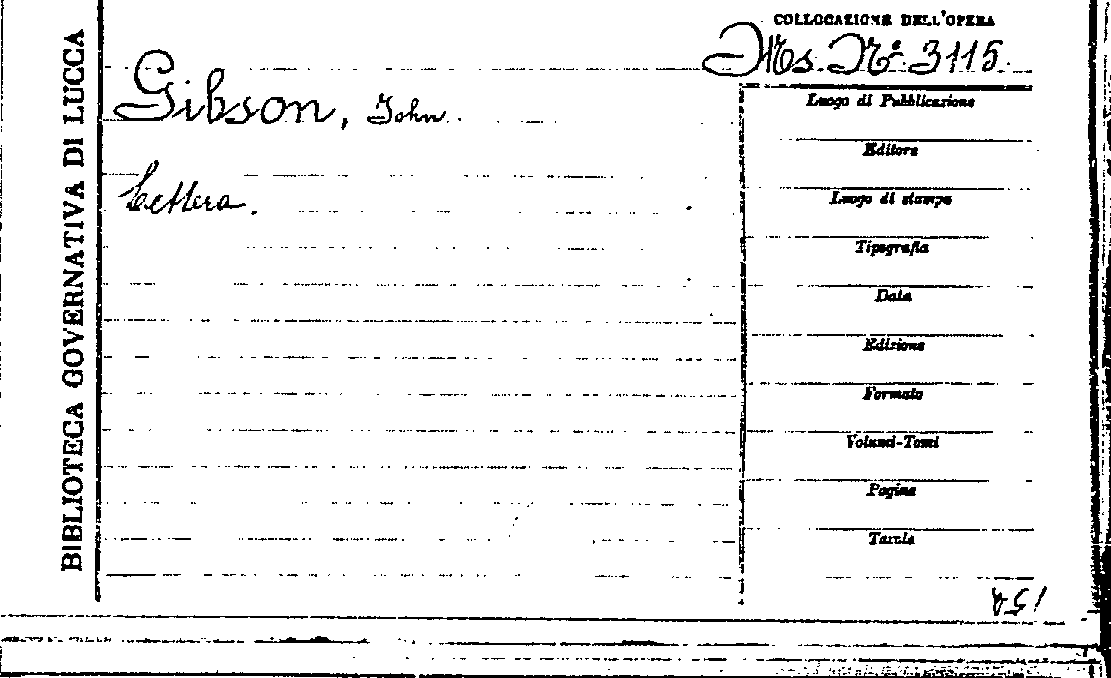 BIBLIOTECA GOVERNATIVA DI LUCCA
COLLOCAZIONE DELL'OPERA
Ms. N° 3115.
Gibson, John.
Lettera.
Luogo di Pubblicazione
Editore
Luogo di stampa
Tipografia
Data
Edizione
Formato
Volumi-Tomi
Pagine
Tavole